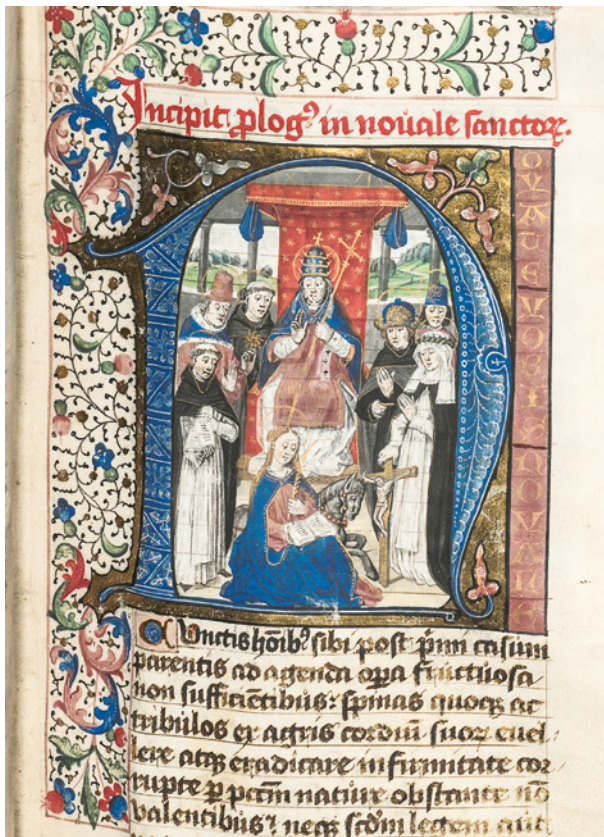 Incipit ꝓlogꝰ in nouale sanctoꝝ.
OVATE VOBIS NOVALE
Cunctis hōıbꝰ sibi post pͥmi casum
parentis ad agenda oꝑa fructuosa
non sufficiētibus: spinas quoqꝫ ac
tribulos ex agris cordiū suoꝝ euel/
lere atqꝫ eradicare infirmitate cor
rupte ꝑ pctm̄ nature obstante nō
valentibus: neqꝫ scd̄m legem aut